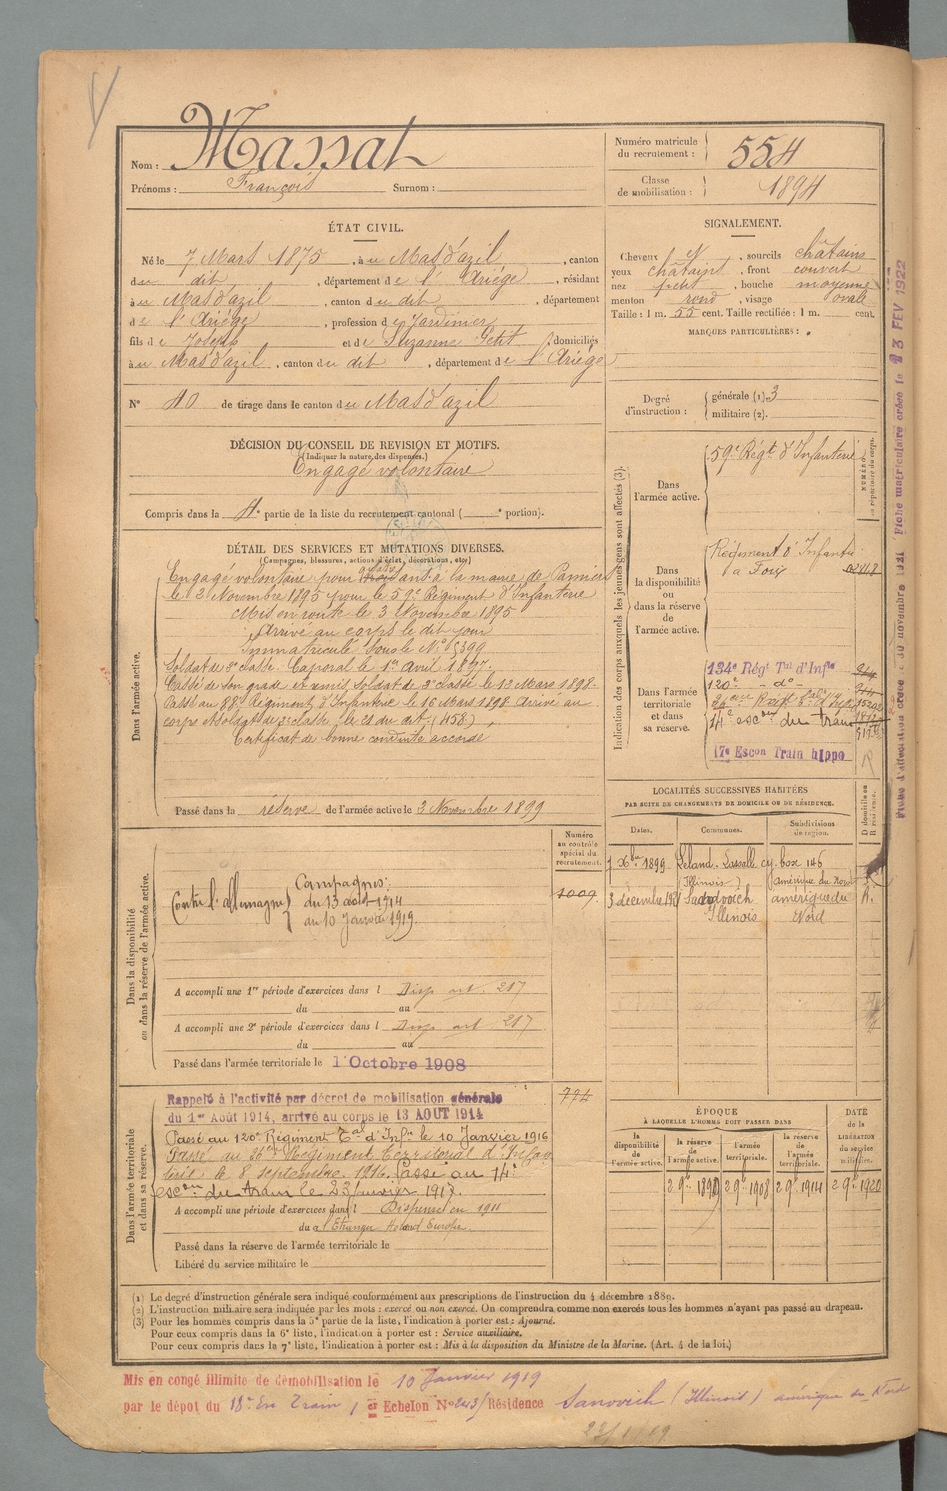 Nom : Massat
Prénoms : François Surnom :
Numéro matricule
du recrutement : 554
Classe
de mobilisation : 1894
ÉTAT CIVIL.
Né le 7 Mars 1875, à u Mas d'azil, canton
du dit, département de l'Ariége, résidant
à u Mas d'azil, canton du dit, département
de l'Ariége, profession de Jardinier
fils de Joseph et de Suzanne Petit, domiciliés
à u Mas d'azil, canton du dit, département de l'Ariége
N° 40 de tirage dans le canton du Mas d'azil
DÉCISION DU CONSEIL DE REVISION ET MOTIFS.
(Indiquer la nature des dispenses.)
Engagé volontaire
Compris dans la 4e partie de la liste du recrutement cantonal ( e portion).
SIGNALEMENT.
Cheveux N, sourcils châtains
yeux châtains, front couvert
nez petit, bouche moyenne
menton rond, visage ovale
Taille : 1 m. 55 cent. Taille rectifiée : 1 m. cent.
MARQUES PARTICULIÈRES :
Degré
d'instruction :
générale (1). 3
militaire (2).
DÉTAIL DES SERVICES ET MUTATIONS DIVERSES.
(Campagnes, blessures, actions d'éclat, décorations, etc.)
Dans l'armée active.
Engagé volontaire pour quatre ans à la mairie de Pamiers
le 2 Novembre 1895 pour le 59e Régiment d'Infanterie
Mis en route le 3 Novembre 1895
Arrivé au corps le dit jour
Immatriculé sous le N° 5399
Soldat de 2e classe. Caporal le 1er avril 1897.
Cassé de son grade et remis soldat de 2e classe le 12 Mars 1898.
Passé au 88e Régiment d'Infanterie le 16 Mars 1898 Arrivé au
corps et soldat de 2e classe, le 21 du dit (458),
Certificat de bonne conduite accordé
Passé dans la réserve de l'armée active le 2 Novembre 1899
Indication des corps auxquels les jeunes gens sont affectés (3).
NUMÉRO
au répertoire du corps.
Dans
l'armée active.
59e Régt d'Infanterie
Dans
la disponibilité
ou
dans la réserve
de
l'armée active.
Régiment d'Infanterie
à Foix
Dans l'armée
territoriale
et dans
sa réserve.
134e Régt Tal d'Infie
120e - do -
14e escon du train
17e Escon Train hippo
R
LOCALITÉS SUCCESSIVES HABITÉES
PAR SUITE DE CHANGEMENTS DE DOMICILE OU DE RÉSIDENCE.
Dates. Communes. Subdivisions
de région.
D domicile ou
R résidence.
7 Xbre 1899 Leland. Lassalle cy. box 146
(Illinois) Amérique du Nord
3 décembre 1921 Sandwich amérique du R.
Illinois Nord
Dans la disponibilité
ou dans la réserve de l'armée active.
Numéro
au contrôle
spécial du
recrutement.
1009
Campagnes :
Contre l'Allemagne du 13 août 1914
au 10 Janvier 1919.
A accompli une 1re période d'exercices dans l Disp art. 217
du au
A accompli une 2e période d'exercices dans l Disp art 217
du au
Passé dans l'armée territoriale le 1er Octobre 1908
Dans l'armée territoriale
et dans sa réserve.
774
Rappelé à l'activité par décret de mobilisation générale
du 1er Août 1914, arrivé au corps le 13 AOUT 1914
Passé au 120e Régiment Tal d'Infie le 10 Janvier 1916
Passé au 36eme Régiment Territorial d'Infan
terie le 8 septembre 1916. Passé au 14e
escon du train le 23 février 1917.
A accompli une période d'exercices dans l Dispensé en 1911
du à l'Etranger Hors d'Europe
Passé dans la réserve de l'armée territoriale le
Libéré du service militaire le
ÉPOQUE
À LAQUELLE L'HOMME DOIT PASSER DANS
la
disponibilité
de
l'armée active.
la réserve
de
l'armée active.
l'armée
territoriale.
la réserve
de
l'armée
territoriale.
DATE
de la
LIBÉRATION
du service
militaire.
2 9bre 1898 2 9bre 1908 2 9bre 1914 2 9bre 1920
(1) Le degré d'instruction générale sera indiqué conformément aux prescriptions de l'instruction du 4 décembre 1889.
(2) L'instruction militaire sera indiquée par les mots : exercé ou non exercé. On comprendra comme non exercés tous les hommes n'ayant pas passé au drapeau.
(3) Pour les hommes compris dans la 5e partie de la liste, l'indication à porter est : Ajourné.
Pour ceux compris dans la 6e liste, l'indication à porter est : Service auxiliaire.
Pour ceux compris dans la 7e liste, l'indication à porter est : Mis à la disposition du Ministre de la Marine. (Art. 4 de la loi.)
Mis en congé illimité de démobilisation le 10 Janvier 1919
par le dépot du 18e En Train, 1er Echelon N° 243 Résidence Sanovich (Illinois) amérique du Nord
23/1/19
Fiche d'affectation créée le 30 novembre 1921 Fiche matriculaire créée le 23 FEV 1922